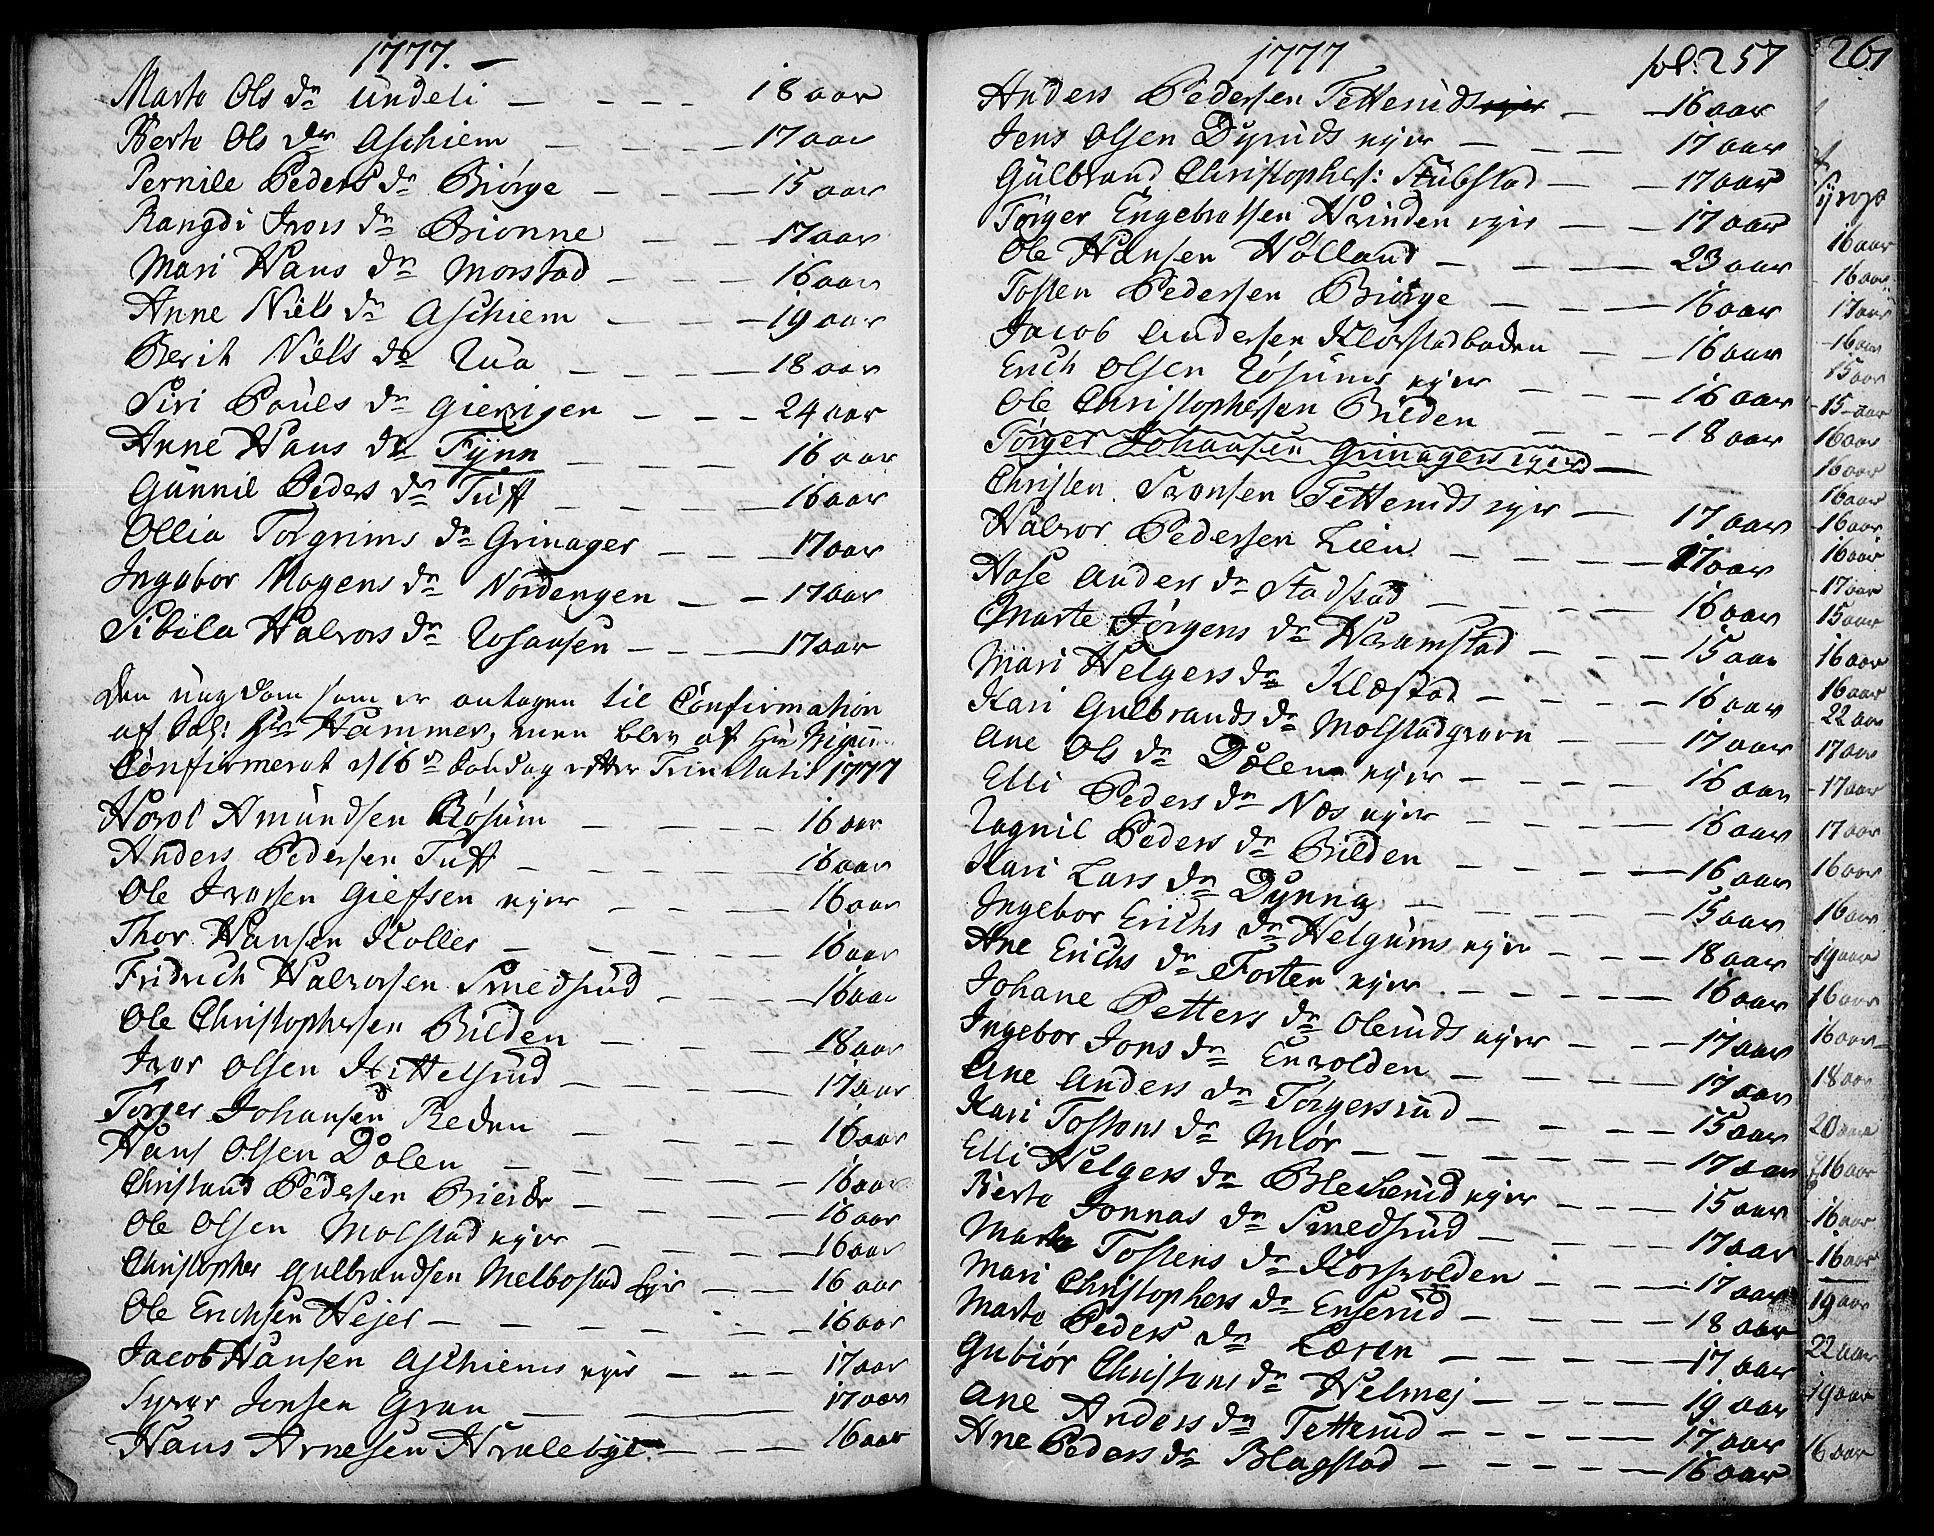 1777. –
Marte Ols dr Undeli – – – – 18 aar
Berte Ols dr Aschiem – – – – 17 aar
Pernile Peders dr Biørge – – – 15 aar
Rangdi Ivers dr Brønne – – – 17 aar
Mari Hans dr Morstad – – – – 16 aar
Anne Niels dr Aschiem – – – 19 aar
Berit Niels dr Lua – – – – 18 aar
Siri Pouels dr – – – 24 aar
Anne Hans dr Tynn – – – – 16 aar
Gunnil Peders dr Tuff – – – – 16 aar
Ollia Torgrims dr Grinager – – – 17 aar
Ingebor Mogens dr Nordengen – – 17 aar
Sibila Halvors dr Rosaasen – – – 17 aar
Den ungdom som er antagen til Confirmation
af Sal: Hr Hammer, men blev af Hr
Confirmeret d 16de Søndag efter Trinitatis 1777
Harol Amundsen Røsum – – – – 16 aar
Anders Pedersen Tuff – – – – 16 aar
Ole Iversen Giefsen ejer – – – 16 aar
Thor Hansen Koller – – – – 16 aar
Fridrich Halvorsen Smedsrud – – – 16 aar
Ole Christophersen Bilden – – – 18 aar
Iver Olsen Kittelsrud – – – – 17 aar
Torger Johansen Reden – – – 16 aar
Hans Olsen Dølen – – – – 16 aar
Christand Pedersen – – – – 16 aar
Ole Olsen Molstad ejer – – – – 16 aar
Christopher Gulbrandsen Melbostad Ejer – – – 16 aar
Ole Erichsen Hejer – – – – – 16 aar
Jacob Hansen Aschiems ejer – – – 17 aar
Syver Jensen Gran – – – 17 aar
Hans Arnesen Hvaleby – – – 16 aar
1777
fol: 257
Anders Pedersen Tetteruds – – 16 aar
Jens Olsen Dyruds ejer – – – – 17 aar
Gulbrand Christophers: Stubstad – – – 17 aar
Torger Engebretsen Hvinden ejer – – 17 aar
Ole Hansen Holland – – – – 23 aar
Tosten Pedersen Biørge – – – – 16 aar
Jacob Andersen Klorstadbaden – – – 16 aar
Erich Olsen Røsums ejer – – – 16 aar
Ole Christophersen Bilden – – – 18 aar
Torger Johansen Grinagers ejer –
Christen Ivensen Tetteruds ejer – – 17 aar
Halvor Pedersen Lien – – – – 17 aar
Hose Anders dr Stadstad – – – – 16 aar
Marte Jørgens dr Hvamstad – – – 15 aar
Mari Helgers dr Klæstad – – – – 16 aar
Kari Gulbrands dr Molstadgvern – – – 17 aar
Ane Ols dr Dølen ejer – – – – 16 aar
Elli Peders dr Næs ejer – – – – 16 aar
Ragnil Peders dr Bilden – – – – 16 aar
Kari Lars dr Dynna – – – – 15 aar
Ingebor Erichs dr Helgums ejer – – – 18 aar
Ane Erichs dr Forten ejer – – – – 16 aar
Johane Petters dr Oleruds ejer – – – 17 aar
Ingebor Jons dr Envolden – – – – 17 aar
Ane Anders dr Torgersrud – – – – 15 aar
Kari Tostens dr Mlør – – – – – 17 aar
Elli Helgers dr Blekerud ejer – – – 15 aar
Berte Jonnas dr Smedsrud – – – – 17 aar
Marte Tostens dr Korsvolden – – – 17 aar
Mari Christophers dr Enserud – – – 18 aar
Marte Peders dr Læren – – – – 17 aar
Gubiør Christens dr Helmej – – – – 19 aar
Ane Anders dr Tetterud – – – – 17 aar
Ane Peders dr Blegstad – – – – 16 aar
261
16 aar
16 aar
17 aar
16 aar
15 aar
15 aar
16 aar
16 aar
16 aar
16 aar
16 aar
17 aar
15 aar
16 aar
16 aar
22 aar
17 aar
17 aar
17 aar
16 aar
16 aar
19 aar
16 aar
16 aar
18 aar
20 aar
16 aar
16 aar
16 aar
19 aar
22 aar
19 aar
16 aar